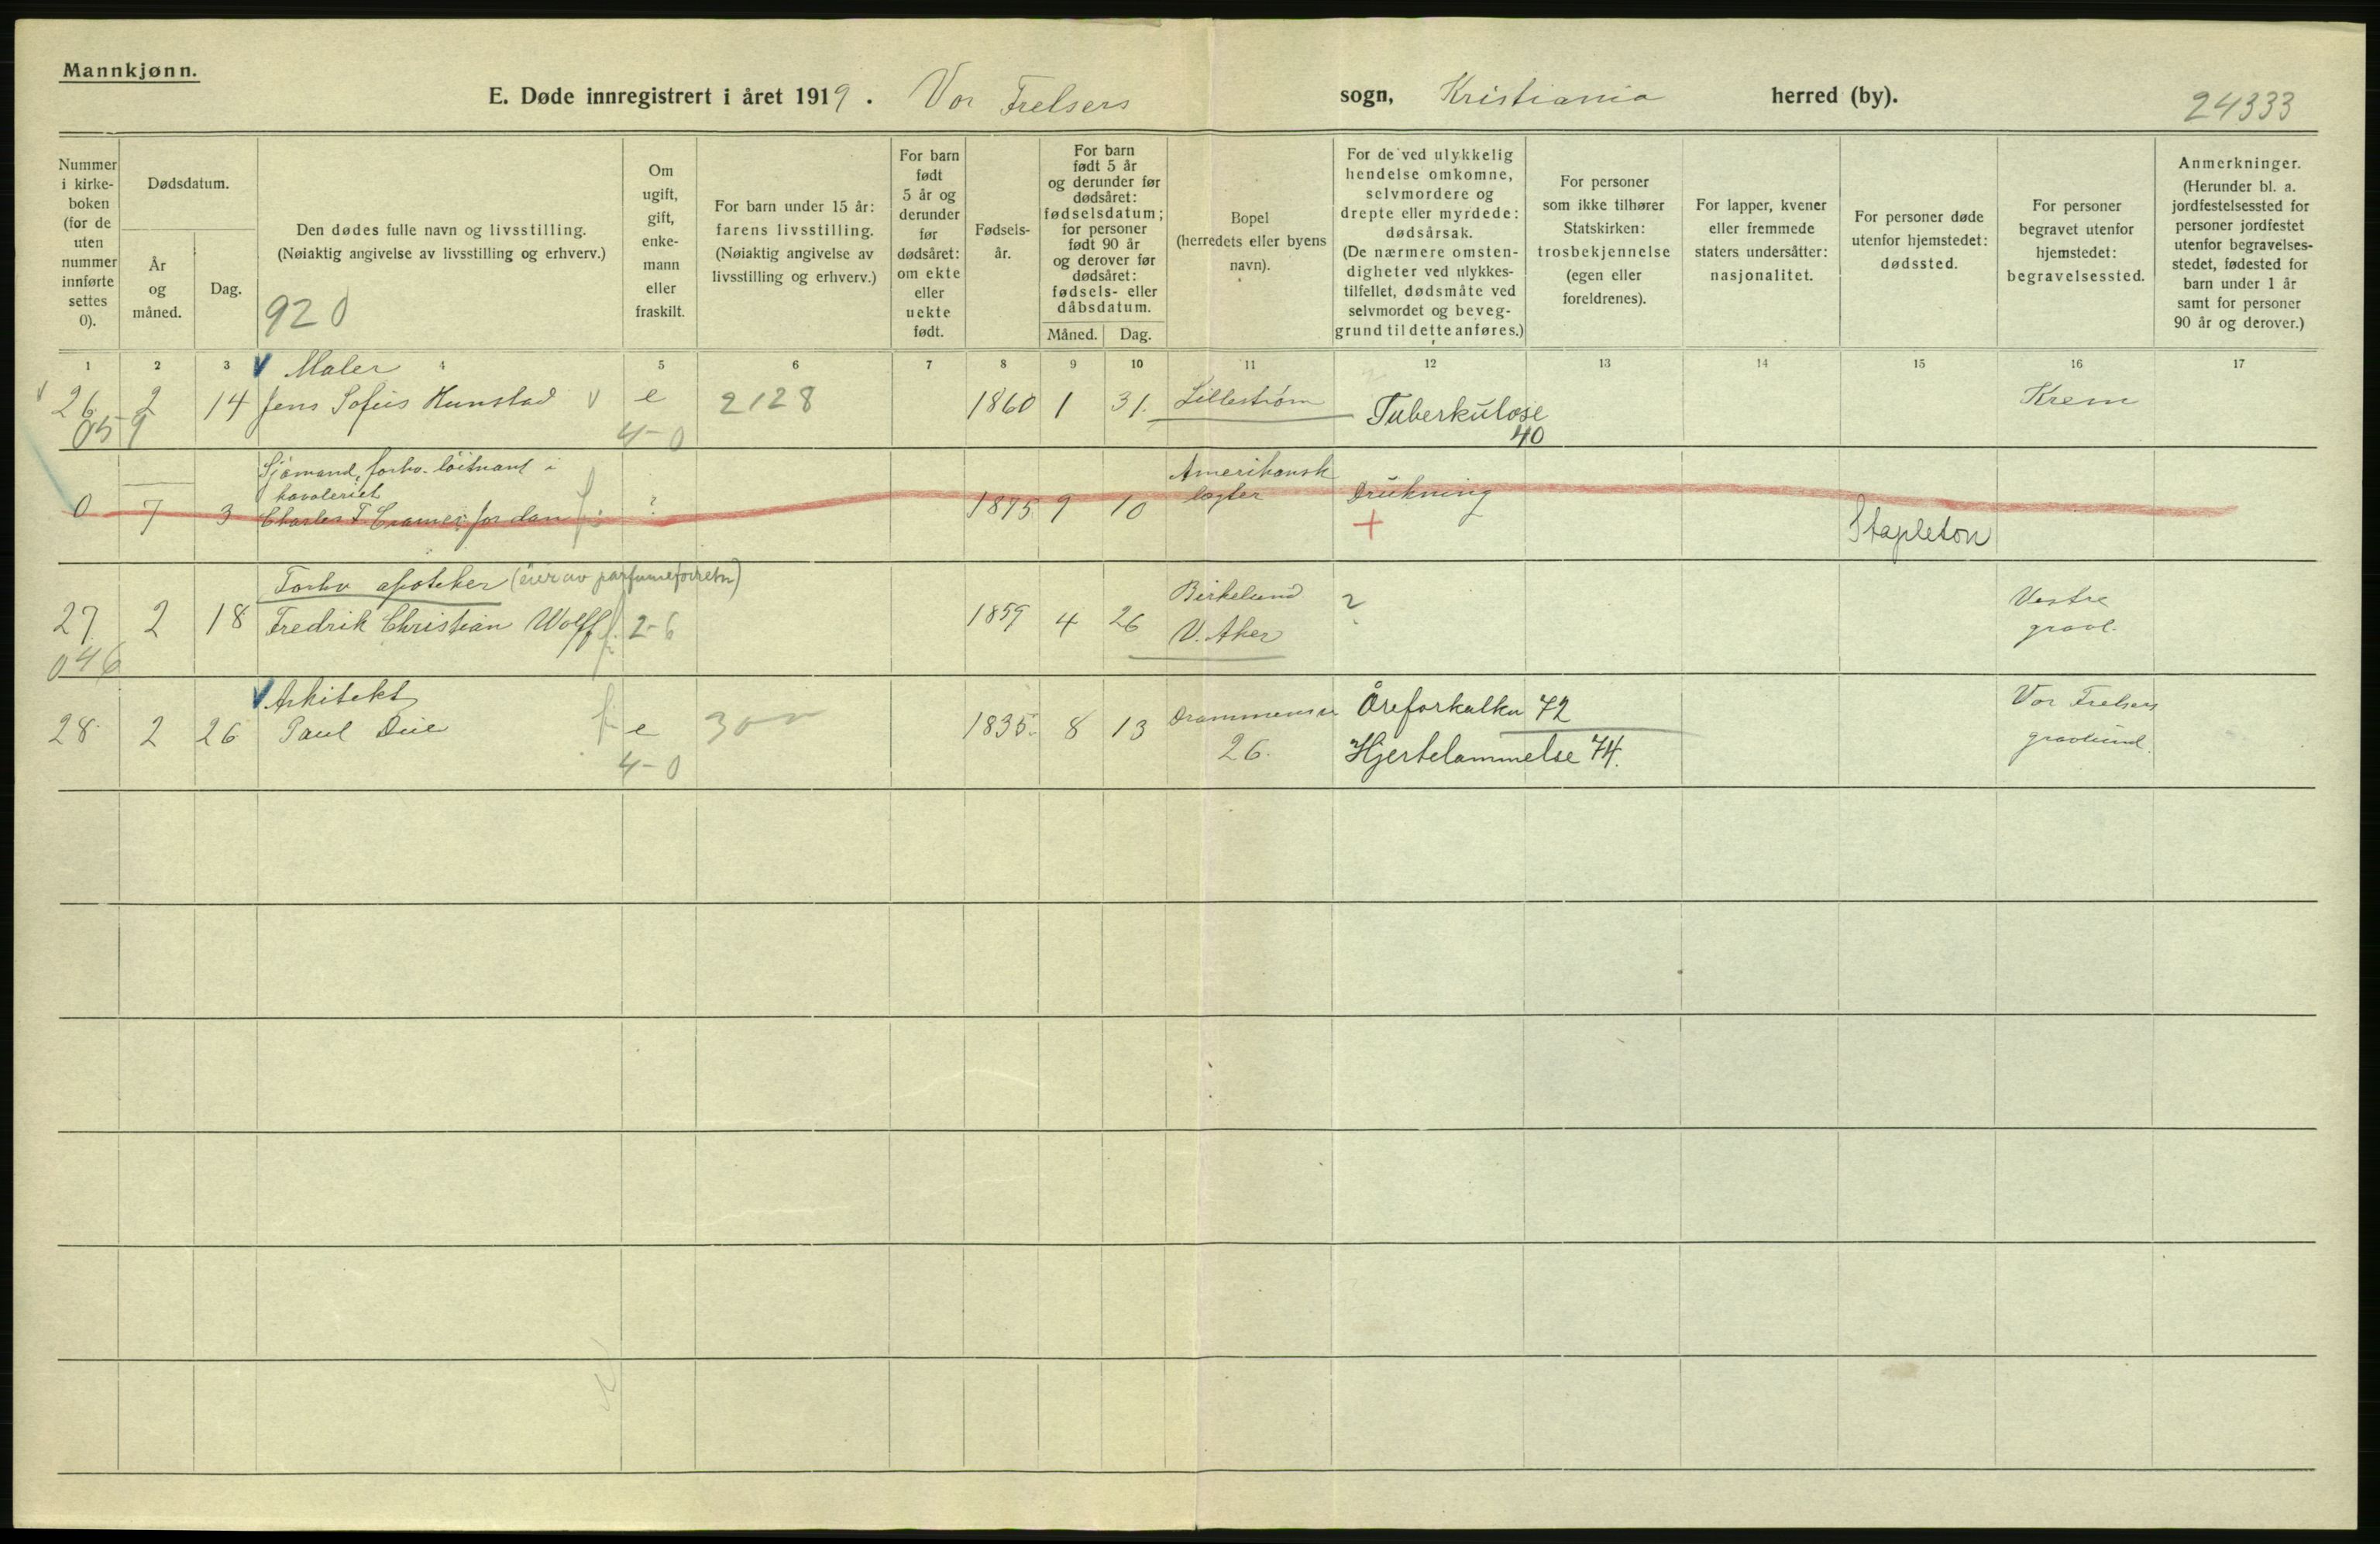 Mannkjønn.
E. Døde innregistrert i året 1919. Vor Frelsers sogn, Kristiania herred (by).
24333
Nummer i kirkeboken (for de uten nummer innførte settes 0).
Dødsdatum.
År og måned.
Dag.
Den dødes fulle navn og livsstilling.
(Nøiaktig angivelse av livsstilling og erhverv.)
920
Om ugift, gift, enkemann eller fraskilt.
For barn under 15 år: farens livsstilling.
(Nøiaktig angivelse av livsstilling og erhverv.)
For barn født 5 år og derunder før dødsåret: om ekte eller uekte født.
Fødselsår.
For barn født 5 år og derunder før dødsåret: fødselsdatum; for personer født 90 år og derover før dødsåret: fødsels- eller dåbsdatum.
Måned.
Dag.
Bopel (herredets eller byens navn).
For de ved ulykkelig hendelse omkomne, selvmordere og drepte eller myrdede: dødsårsak.
(De nærmere omstendigheter ved ulykkestilfellet, dødsmåte ved selvmordet og beveggrund til dette anføres.)
For personer som ikke tilhører Statskirken: trosbekjennelse (egen eller foreldrenes).
For lapper, kvener eller fremmede staters undersåtter: nasjonalitet.
For personer døde utenfor hjemstedet: dødssted.
For personer begravet utenfor hjemstedet: begravelsessted.
Anmerkninger.
(Herunder bl. a. jordfestelsessted for personer jordfestet utenfor begravelsesstedet, fødested for barn under 1 år samt for personer 90 år og derover.)
1 2 3 4 5 6 7 8 9 10 11 12 13 14 15 16 17
Maler
26 2 14 Jens Sofus Hunstad e 2128 1860 1 31. Lillestrøm Tuberkulose Krem
059 4-0 40
Sjømand, forhv. løitnant i kavaleriet
0 7 3 Charles F Cramer Jordan ? 1875 9 10 Amerikansk Drukning
+ Stapleton
Forhv apoteker (eier av parfumeforretn)
27 2 18 Fredrik Christian Wolff 2-6 1859 4 26 Birkelund V. Aker ? Vestre gravl.
046
Arkitekt
28. 2 26 Paul Due e 300 1835. 8 13 Drammensv 26. Åreforkalkn 72 Vor Frelsers gravlund.
4-0 Hjertelammelse 74.